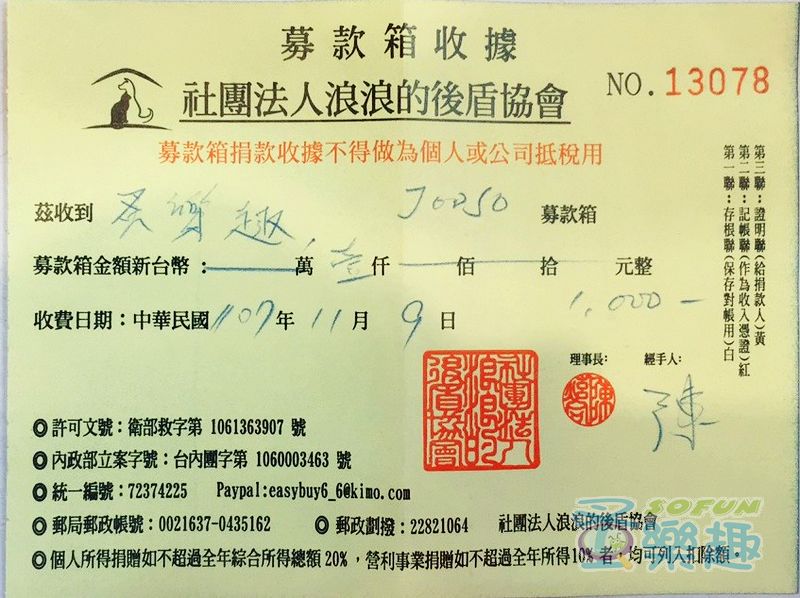 募款箱收據
社團法人浪浪的後盾協會
NO.13078
募款箱捐款收據不得做為個人或公司抵稅用
茲收到 樂趣 J0050 募款箱
募款箱金額新台幣：萬壹仟佰拾元整
1,000-
收費日期：中華民國107年11月9日
第三聯：證明聯(給捐款人)黃
第二聯：記帳聯(作為收入憑證)紅
第一聯：存根聯(保存對帳用)白
理事長： 經手人：
陳
社團法人浪浪的後盾協會
◎許可文號：衛部救字第 1061363907 號
◎內政部立案字號：台內團字第 1060003463 號
◎統一編號：72374225 Paypal:easybuy6_6@kimo.com
◎郵局郵政帳號：0021637-0435162 ◎郵政劃撥：22821064 社團法人浪浪的後盾協會
◎個人所得捐贈如不超過全年綜合所得總額20%，營利事業捐贈如不超過全年所得10%者，均可列入扣除額。
SOFUN
樂趣